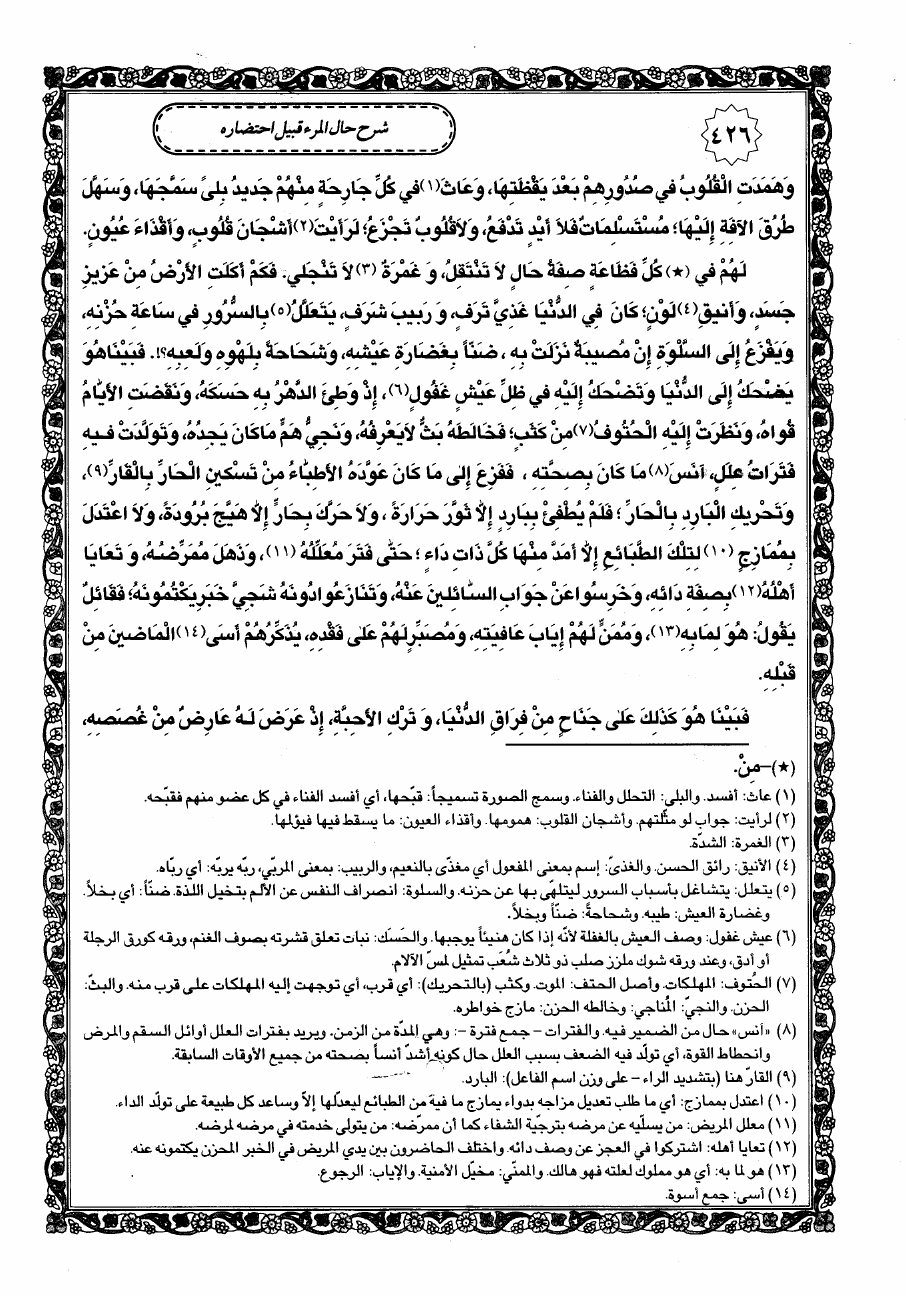 ٤٢٦
شرح حال المرء قبيل احتضاره
وَهَمَدَتِ الْقُلُوبُ في صُدُورِهِمْ بَعْدَ يَقْظَتِهَا، وَعَاثَ(١)في كُلِّ جَارِحَةٍ مِنْهُمْ جَدِيدُ بِلىً سَمَّجَهَا، وَسَهَّلَ
طُرُقَ الآفَةِ إِلَيْهَا؛ مُسْتَسْلِمَاتٌ فَلاَ أَيْدٍ تَدْفَعُ، وَلاَقُلُوبٌ تَجْزَعُ؛ لَرَأَيْتَ(٢)أَشْجَانَ قُلُوبٍ، وَأَقْذَاءَ عُيُونٍ.
لَهُمْ في (★) كُلِّ فَظَاعَةٍ صِفَةُ حَالٍ لاَ تَنْتَقِلُ، وَ غَمْرَةٌ (٣) لاَ تَنْجَلِي. فَكَمْ أَكَلَتِ الأَرْضُ مِنْ عَزِيزِ
جَسَدٍ، وَأَنِيقِ(٤)لَوْنٍ؛ كَانَ في الدُّنْيَا غَذِيَّ تَرَفٍ، وَ رَبِيبَ شَرَفٍ، يَتَعَلَّلُ(٥)بِالسُّرُورِ في سَاعَةِ حُزْنِهِ،
وَيَفْزَعُ إِلَى السَّلْوَةِ إِنْ مُصِيبَةٌ نَزَلَتْ بِهِ ، ضَنّاً بِغَضَارَةِ عَيْشِهِ، وَشَحَاحَةً بِلَهْوِهِ وَلَعِبِهِ؟!. فَبَيْنَاهُوَ
يَضْحَكُ إِلَى الدُّنْيَا وَتَضْحَكُ إِلَيْهِ في ظِلِّ عَيْشٍ غَفُولٍ(٦)، إِذْ وَطِئَ الدَّهْرُ بِهِ حَسَكَهُ، وَنَقَضَتِ الأَيَّامُ
قُواهُ، وَنَظَرَتْ إِلَيْهِ الْحُتُوفُ(٧)مِنْ كَثَبٍ؛ فَخَالَطَهُ بَثٌّ لاَيَعْرِفُهُ، وَنَجِيُّ هَمٍّ مَاكَانَ يَجِدُهُ، وَتَوَلَّدَتْ فِيهِ
فَتَرَاتُ عِلَلٍ، آنَسَ(٨)مَا كَانَ بِصِحَّتِهِ ، فَفَزِعَ إِلى مَا كَانَ عَوَّدَهُ الأَطِبَّاءُ مِنْ تَسْكِينِ الْحَارِّ بِالْقَارِّ(٩)،
وَتَحْرِيكِ الْبَارِدِ بِالْحَارِّ؛ فَلَمْ يُطْفِئْ بِبَارِدٍ إِلاَّ ثَوَّرَ حَرَارَةً ، وَلاَ حَرَّكَ بِحَارٍّ إِلاَّ هَيَّجَ بُرُودَةً، وَلاَ اعْتَدَلَ
بِمُمَازِجٍ (١٠) لِتِلْكَ الطَّبَائِعِ إِلاَّ أَمَدَّ مِنْهَا كُلَّ ذَاتِ دَاءٍ ؛ حَتَّى فَتَرَ مُعَلِّلُهُ (١١)، وَذَهَلَ مُمَرِّضُهُ، وَ تَعَايَا
أَهْلُهُ(١٢)بِصِفَةِ دَائِهِ، وَخَرِسُوا عَنْ جَوَابِ السَّائِلينَ عَنْهُ، وَتَنَازَعُوا دُونَهُ شَجِيَّ خَبَرٍ يَكْتُمُونَهُ؛ فَقَائِلٌ
يَقُولُ: هُوَ لِمَابِهِ(١٣)، وَمُمَنٍّ لَهُمْ إِيَابَ عَافِيَتِهِ، وَمُصَبِّرٌ لَهُمْ عَلى فَقْدِهِ، يُذَكِّرُهُمْ أُسَى(١٤)الْمَاضِينَ مِنْ
قَبْلِهِ.
فَبَيْنَا هُوَ كَذلِكَ عَلى جَنَاحٍ مِنْ فِرَاقِ الدُّنْيَا، وَ تَرْكِ الأَحِبَّةِ، إِذْ عَرَضَ لَهُ عَارِضٌ مِنْ غُصَصِهِ،
(★)-مِنْ.
(١) عاث: أفسد. والبلى: التحلل والفناء. وسمج الصورة تسميجاً: قبّحها، أي أفسد الفناء في كل عضو منهم فقبّحه.
(٢) لرأيت: جواب لو مثّلتهم. وأشجان القلوب: همومها. وأقذاء العيون: ما يسقط فيها فيؤلها.
(٣) الغمرة: الشدّة.
(٤) الأنيق: رائق الحسن. والغذيّ: إسم بمعنى المفعول أي مغذّى بالنعيم، والربيب: بمعنى المربّي، ربّه يربّه: أي ربّاه.
(٥) يتعلل: يتشاغل بأسباب السرور ليتلهّى بها عن حزنه. والسلوة: انصراف النفس عن الألم بتخيل اللذة. ضنّاً: أي بخلاً.
وغضارة العيش: طيبه. وشحاحةً: ضنّاً وبخلاً.
(٦) عيش غفول: وصف العيش بالغفلة لأنّه إذا كان هنيئاً يوجبها. والحَسَك: نبات تعلق قشرته بصوف الغنم، ورقه كورق الرجلة
أو أدق، وعند ورقه شوك ملزز صلب ذو ثلاث شُعَب تمثيل لمسّ الآلام.
(٧) الحُتُوف: المهلكات. وأصل الحتف: الموت. وكثب (بالتحريك): أي قرب، أي توجهت إليه المهلكات على قرب منه. والبثّ:
الحزن. والنجيّ: المُناجي: وخالطه الحزن: مازج خواطره.
(٨) «آنس» حال من الضمير فيه. والفترات - جمع فترة -: وهي المدّة من الزمن. ويريد بفترات العلل أوائل السقم والمرض
وانحطاط القوة، أي تولّد فيه الضعف بسبب العلل حال كونه أشدّ أنساً بصحته من جميع الأوقات السابقة.
(٩) القارّ هنا (بتشديد الراء - على وزن اسم الفاعل): البارد.
(١٠) اعتدل بممازج: أي ما طلب تعديل مزاجه بدواء يمازج ما فيه من الطبائع ليعدلها إلاّ وساعد كل طبيعة على تولّد الداء.
(١١) معلل المريض: من يسلّيه عن مرضه بترجيّة الشفاء كما أن ممرّضه: من يتولى خدمته في مرضه لمرضه.
(١٢) تعايا أهله: اشتركوا في العجز عن وصف دائه. واختلف الحاضرون بين يدي المريض في الخبر المحزن يكتمونه عنه.
(١٣) هو لما به: أي هو مملوك لعلته فهو هالك. والممنّي: مخيّل الأمنية. والإياب: الرجوع.
(١٤) أسى: جمع أسوة.